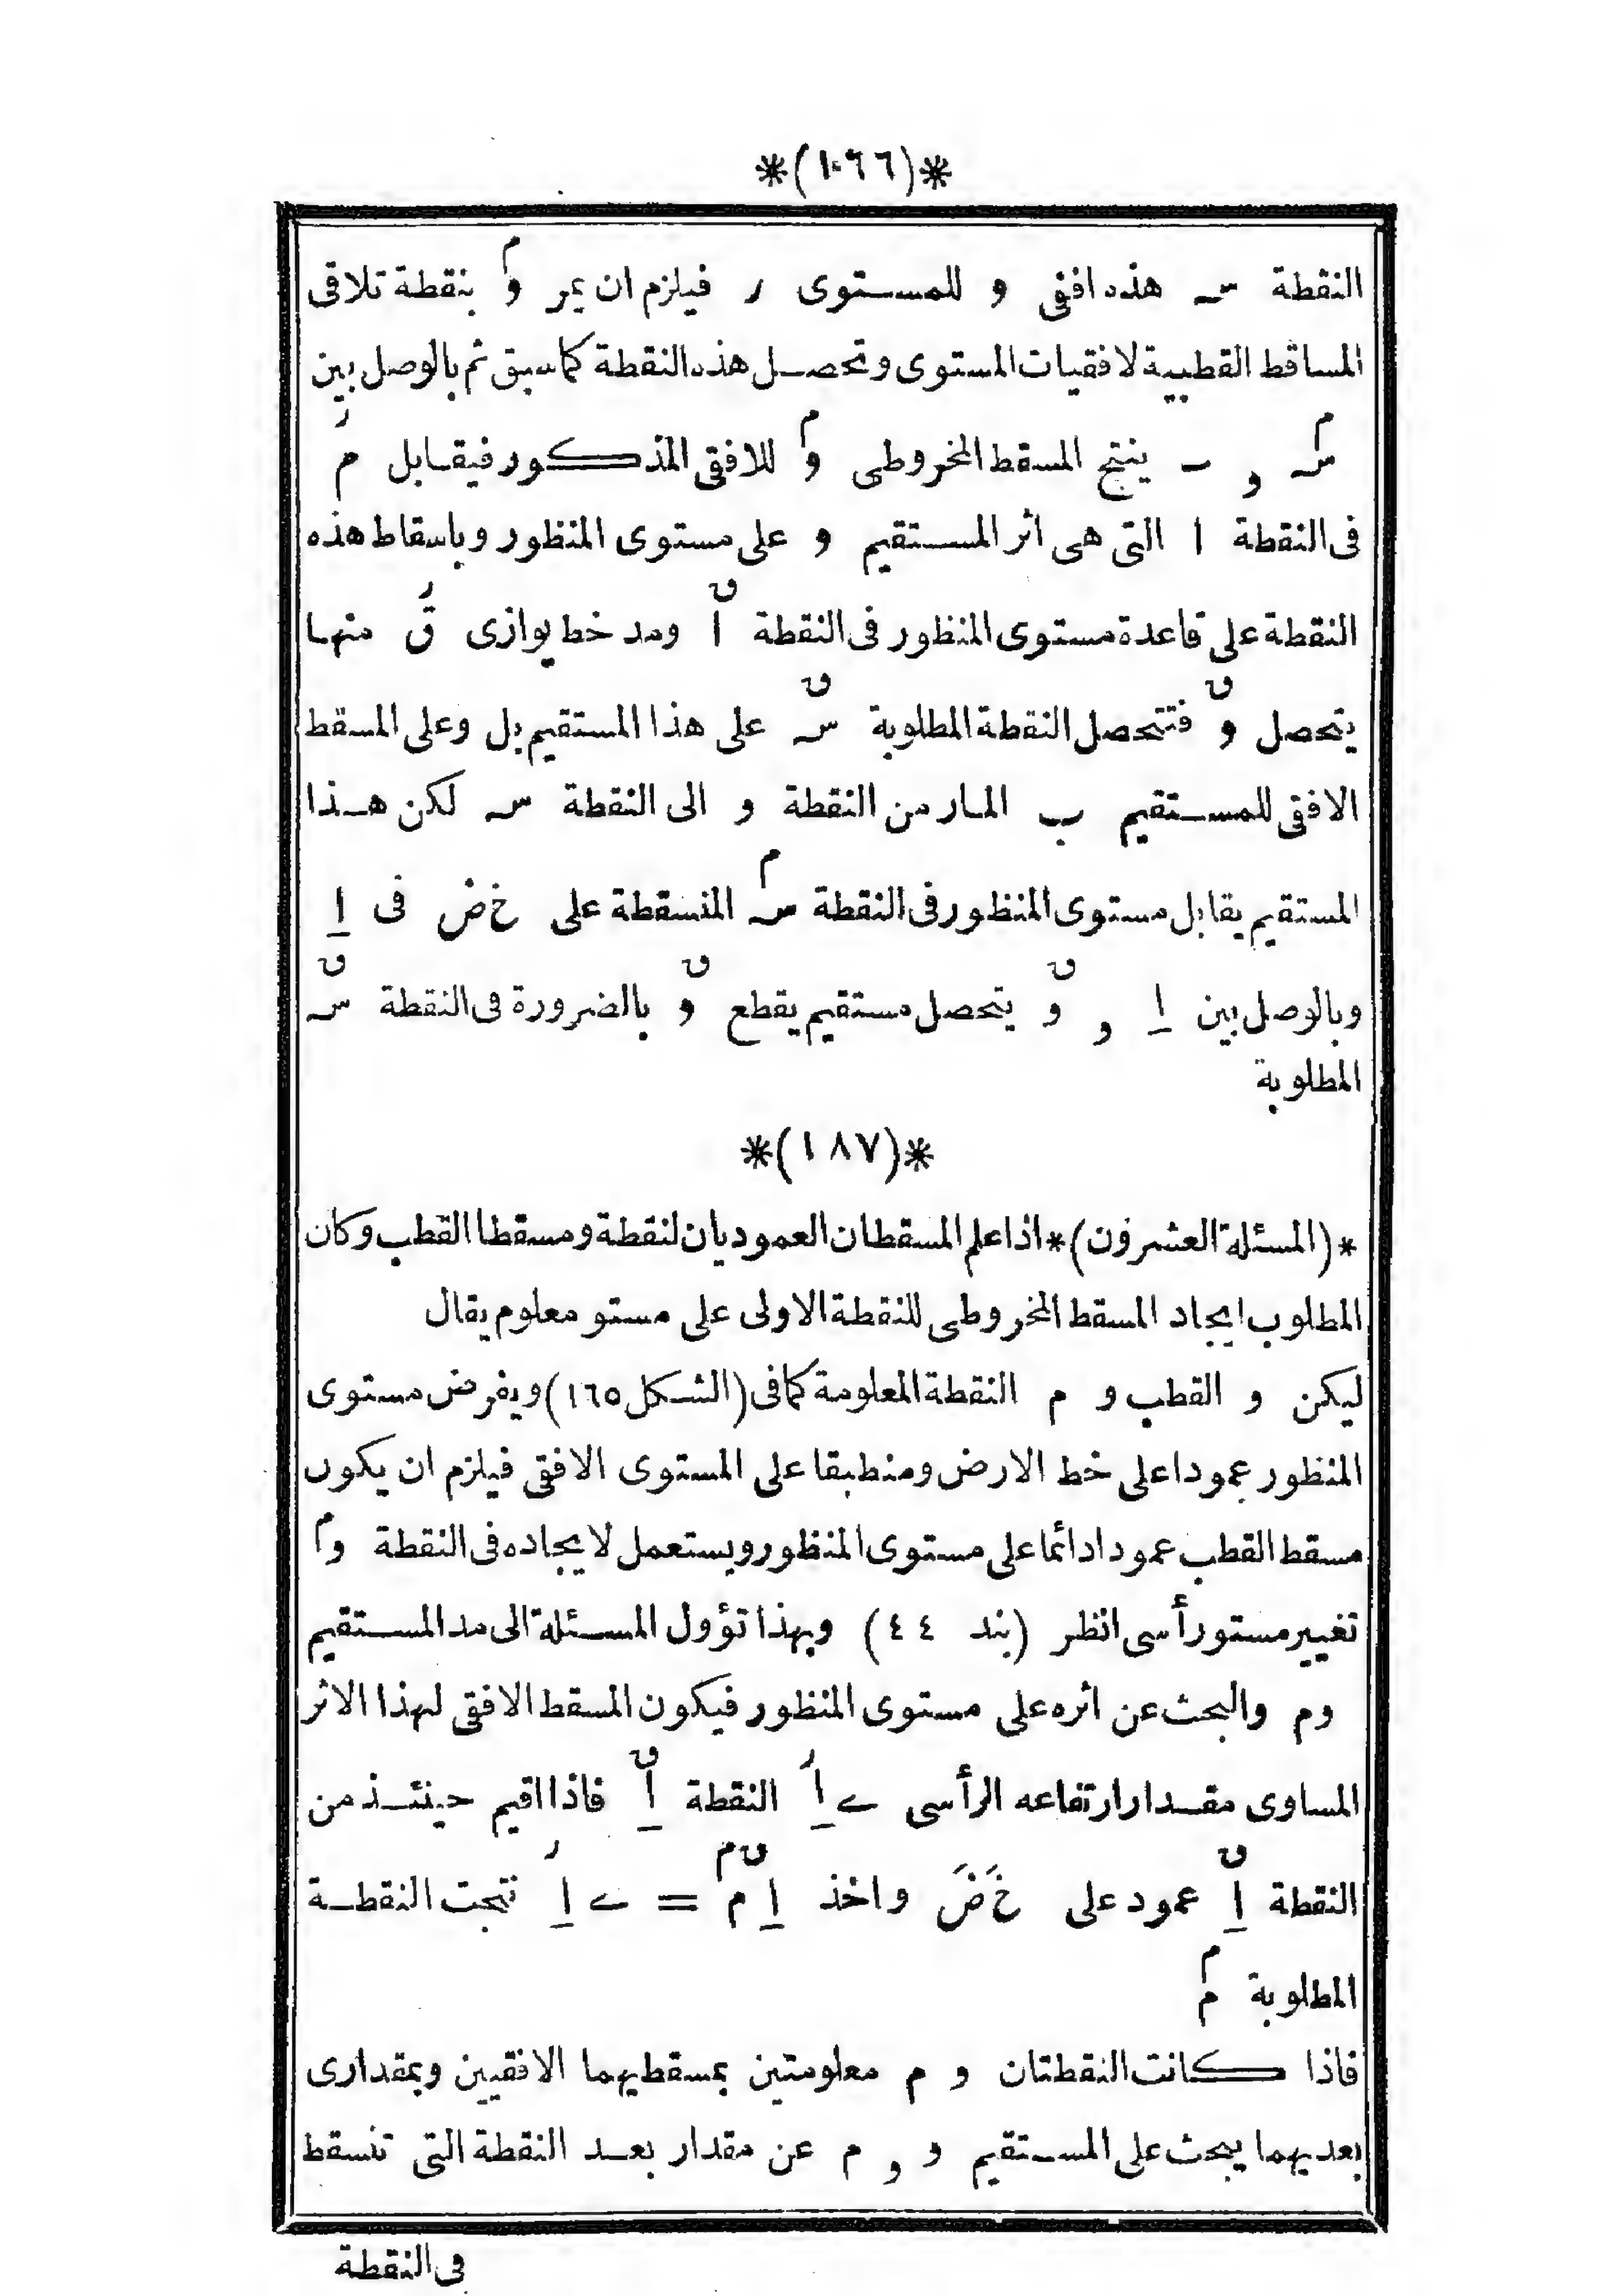 *(١٠٦٦)*
النقطة س هذه افقى و للمستوى ر فيلزم ان يمر وَم بنقطة تلاقى
المساقط القطبية لافقيات المستوى وتحصل هذه النقطة كما سبق ثم بالوصل بين
سَم و ـ ينتج المسقط المخروطى وَم للافقى المذكور فيقابل مَر
فى النقطة ا التى هى اثر المستقيم و على مستوى المنظور وباسقاط هذه
النقطة على قاعدة مستوى المنظور فى النقطة اَق ومد خط يوازى قَر منها
يتحصل وَق فتتحصل النقطة المطلوبة سَق على هذا المستقيم بل وعلى المسقط
الافقى للمستقيم ب المار من النقطة و الى النقطة س لكن هذا
المستقيم يقابل مستوى المنظور فى النقطة سَم المنسقطة على خ ض فى ا
وبالوصل بين ا و وَق يتحصل مستقيم يقطع وَق بالضرورة فى النقطة سَق
المطلوبة
*(١٨٧)*
*(المسئلة العشرون)* اذا علم المسقطان العموديان لنقطة ومسقطا القطب وكان
المطلوب ايجاد المسقط المخروطى للنقطة الاولى على مستو معلوم يقال
ليكن و القطب و م النقطة المعلومة كما فى (الشكل ١٦٥) ويفرض مستوى
المنظور عمودا على خط الارض ومنطبقا على المستوى الافقى فيلزم ان يكون
مسقط القطب عمودا دائما على مستوى المنظور ويستعمل لايجاده فى النقطة وَم
تغيير مستو رأسى انظر (بند ٤٤) وبهذا تؤول المسئلة الى مد المستقيم
وم والبحث عن اثره على مستوى المنظور فيكون المسقط الافقى لهذا الاثر
المساوى مقدار ارتفاعه الرأسى ے اَر النقطة اَق فاذا اقيم حينئذ من
النقطة اَق عمود على خَ ضَ واخذ اَق مَم = ے اَر نتجت النقطة
المطلوبة مَم
فاذا كانت النقطتان و م معلومتين بمسقطيهما الافقيين وبمقدارى
بعديهما يبحث على المستقيم و و م عن مقدار بعد النقطة التى تنسقط
فى النقطة